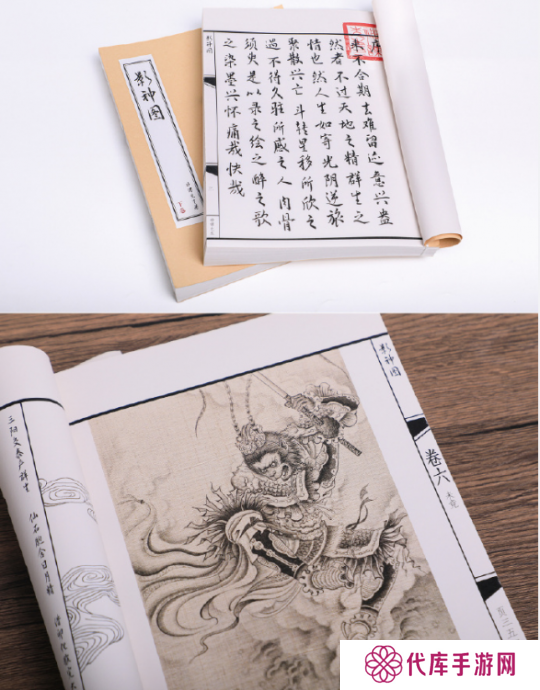 影神图
影神图
序
来不合期去难留迹意兴盎
然者不过天地之精群生之
情也然人生如寄光阴逆旅
聚散兴亡斗转星移所欣之
遇不得久驻所感之人肉骨
须臾是以录之绘之醉之歌
之染墨兴怀痛哉快哉
影神图
卷六
三阳交泰产群生
仙石胞含日月精
借卵化猴完大
代库手游网